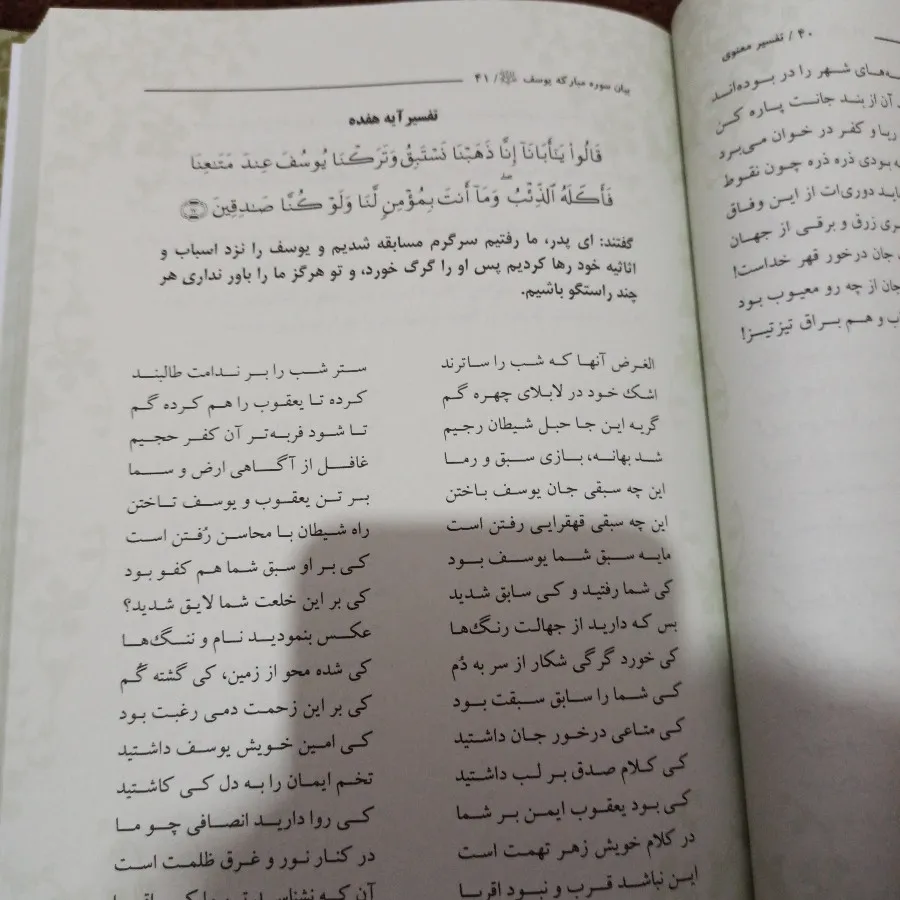 ۴۰ / تفسیر معنوی
ه‌های شهر را در بوده‌اند
آن از بند جانت پاره کن
ربا و کفر در خوان می‌برد
بودی ذره ذره چون نقوط
اید دوری‌ات از این وفاق
ری زرق و برقی از جهان
جان درخور قهر خداست!
جان از چه رو معیوب بود
و هم براق تیزتیز!
بیان سوره مبارکه یوسف / ۴۱
تفسیر آیه هفده
قَالُواْ يَٰٓأَبَانَآ إِنَّا ذَهَبۡنَا نَسۡتَبِقُ وَتَرَكۡنَا يُوسُفَ عِندَ مَتَٰعِنَا
فَأَكَلَهُ ٱلذِّئۡبُۖ وَمَآ أَنتَ بِمُؤۡمِنٖ لَّنَا وَلَوۡ كُنَّا صَٰدِقِينَ
گفتند: ای پدر، ما رفتیم سرگرم مسابقه شدیم و یوسف را نزد اسباب و
اثاثیه خود رها کردیم پس او را گرگ خورد، و تو هرگز ما را باور نداری هر
چند راستگو باشیم.
الغرض آنها که شب را ساترند ستر شب را بر ندامت طالبند
اشک خود در لابلای چهره گم کرده تا یعقوب را هم کرده گم
گریه این جا حبل شیطان رجیم تا شود فربه‌تر آن کفر حجیم
شد بهانه، بازی سبق و رما غافل از آگاهی ارض و سما
این چه سبقی جان یوسف باختن بر تن یعقوب و یوسف تاختن
این چه سبقی قهقرایی رفتن است راه شیطان با محاسن رُفتن است
مایه سبق شما یوسف بود کی بر او سبق شما هم کفو بود
کی شما رفتید و کی سابق شدید کی بر این خلعت شما لایق شدید؟
بس که دارید از جهالت رنگ‌ها عکس بنمودید نام و ننگ‌ها
کی خورد گرگی شکار از سر به دُم کی شده محو از زمین، کی گشته گُم
کی شما را سابق سبقت بود کی بر این زحمت دمی رغبت بود
کی متاعی درخور جان داشتید کی امین خویش یوسف داشتید
کی کلام صدق بر لب داشتید تخم ایمان را به دل کی کاشتید
کی بود یعقوب ایمن بر شما کی روا دارید انصافی چو ما
در کلام خویش زهر تهمت است در کنار نور و غرق ظلمت است
این نباشد قرب و نبود اقربا آن که نشناسد